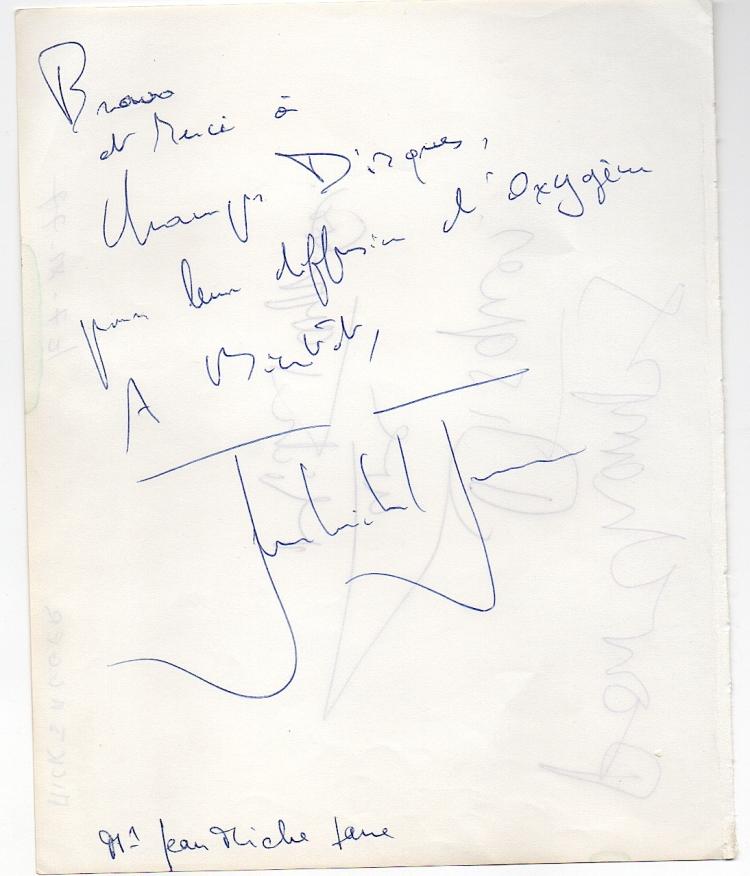 Bravo
et Merci à
Champs Disques,
pour leur diffusion d'Oxygène
A Bientôt,
Jean Michel Jarre
Mr Jean Miche Jarre
MICK JAGGER